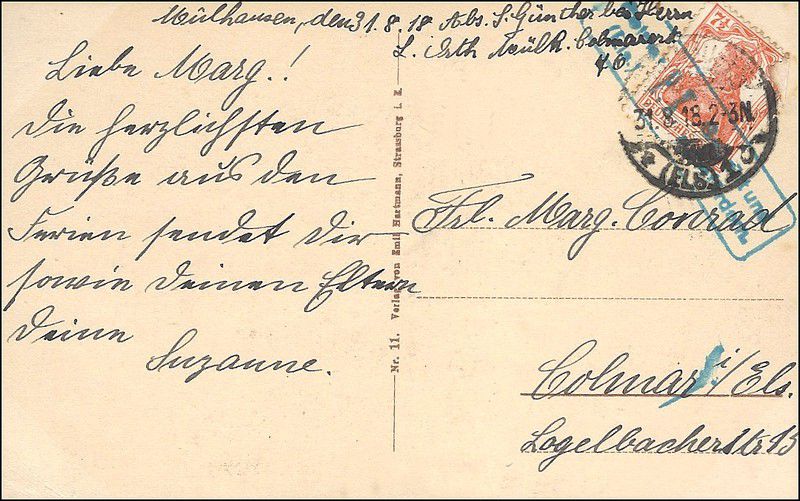 Mülhausen, den 31.8.18 Abs. S. Günther bei Herrn
L. Erth Mülh. Colmarerstr
46
Liebe Marg.!
die herzlichsten
Grüße aus den
Ferien sendet Dir
sowie deinen Eltern
deine
Suzanne.
Nr. 11. Verlag von Emil Hartmann, Strassburg i. E.
7½
31.8.18.2-3N.
* (ELS.) 1 c
Frl. Marg. Conrad
Colmar i/Els.
Logelbacherstr 15